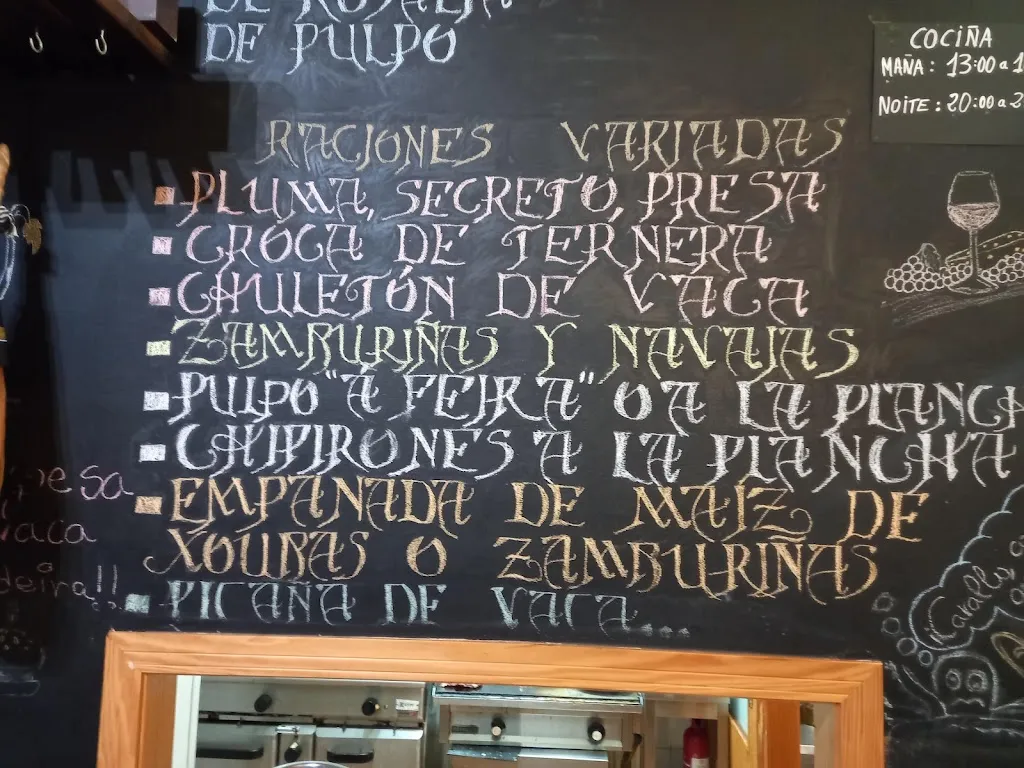 DE PULPO
COCIÑA
MAÑA: 13:00 a 1
NOITE: 20:00 a 2
RACIONES VARIADAS
PLUMA, SECRETO, PRESA
CROCA DE TERNERA
CHULETÓN DE VACA
ZAMBURIÑAS Y NAVAJAS
PULPO "A FEIRA" O A LA PLANCH
CHIPIRONES A LA PLANCHA
EMPANADA DE MAÍZ DE
XOUBAS O ZAMBURIÑAS
PICAÑA DE VACA...
esa
vaca
deira!!